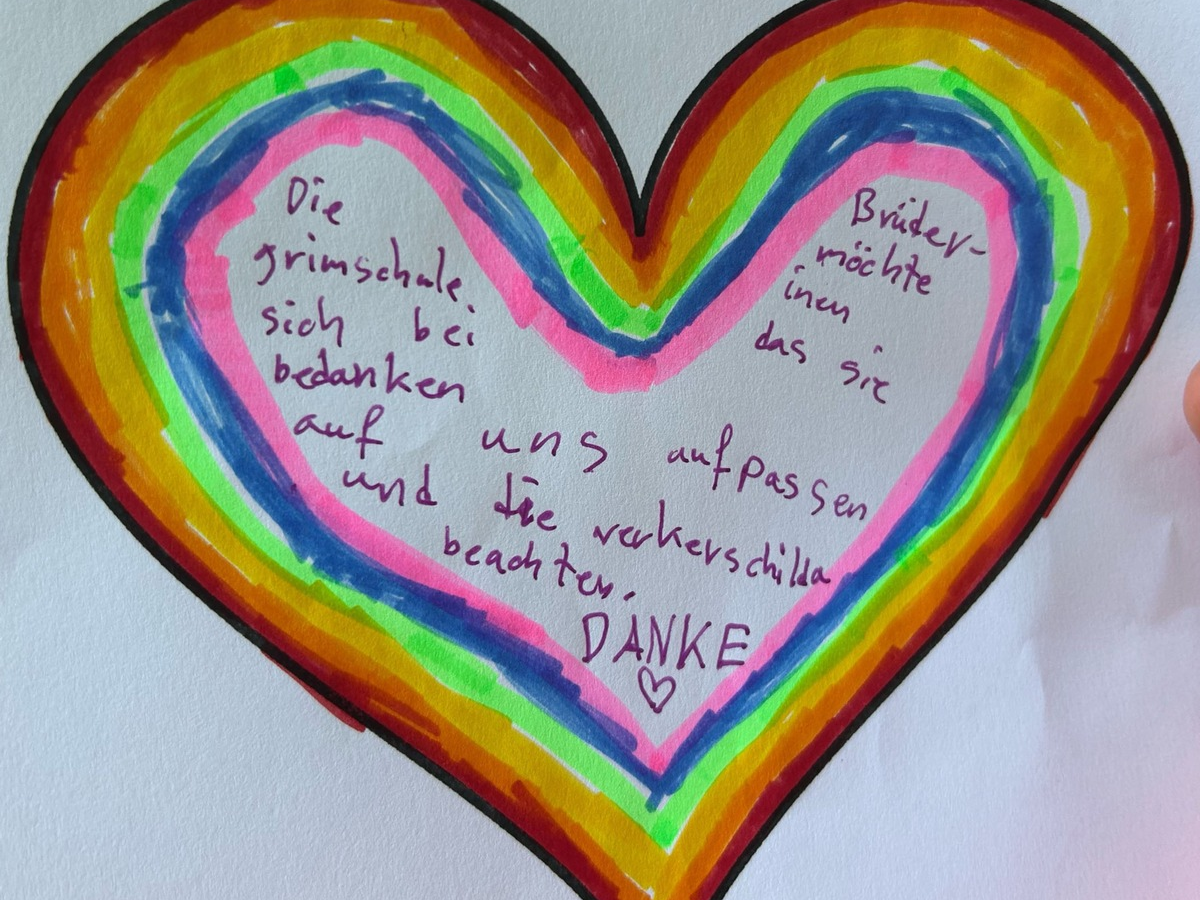 Die Brüder-
grimschule. möchte
sich bei inen
bedanken das sie
auf uns aufpassen
und die verkerschilda
beachten.
DANKE